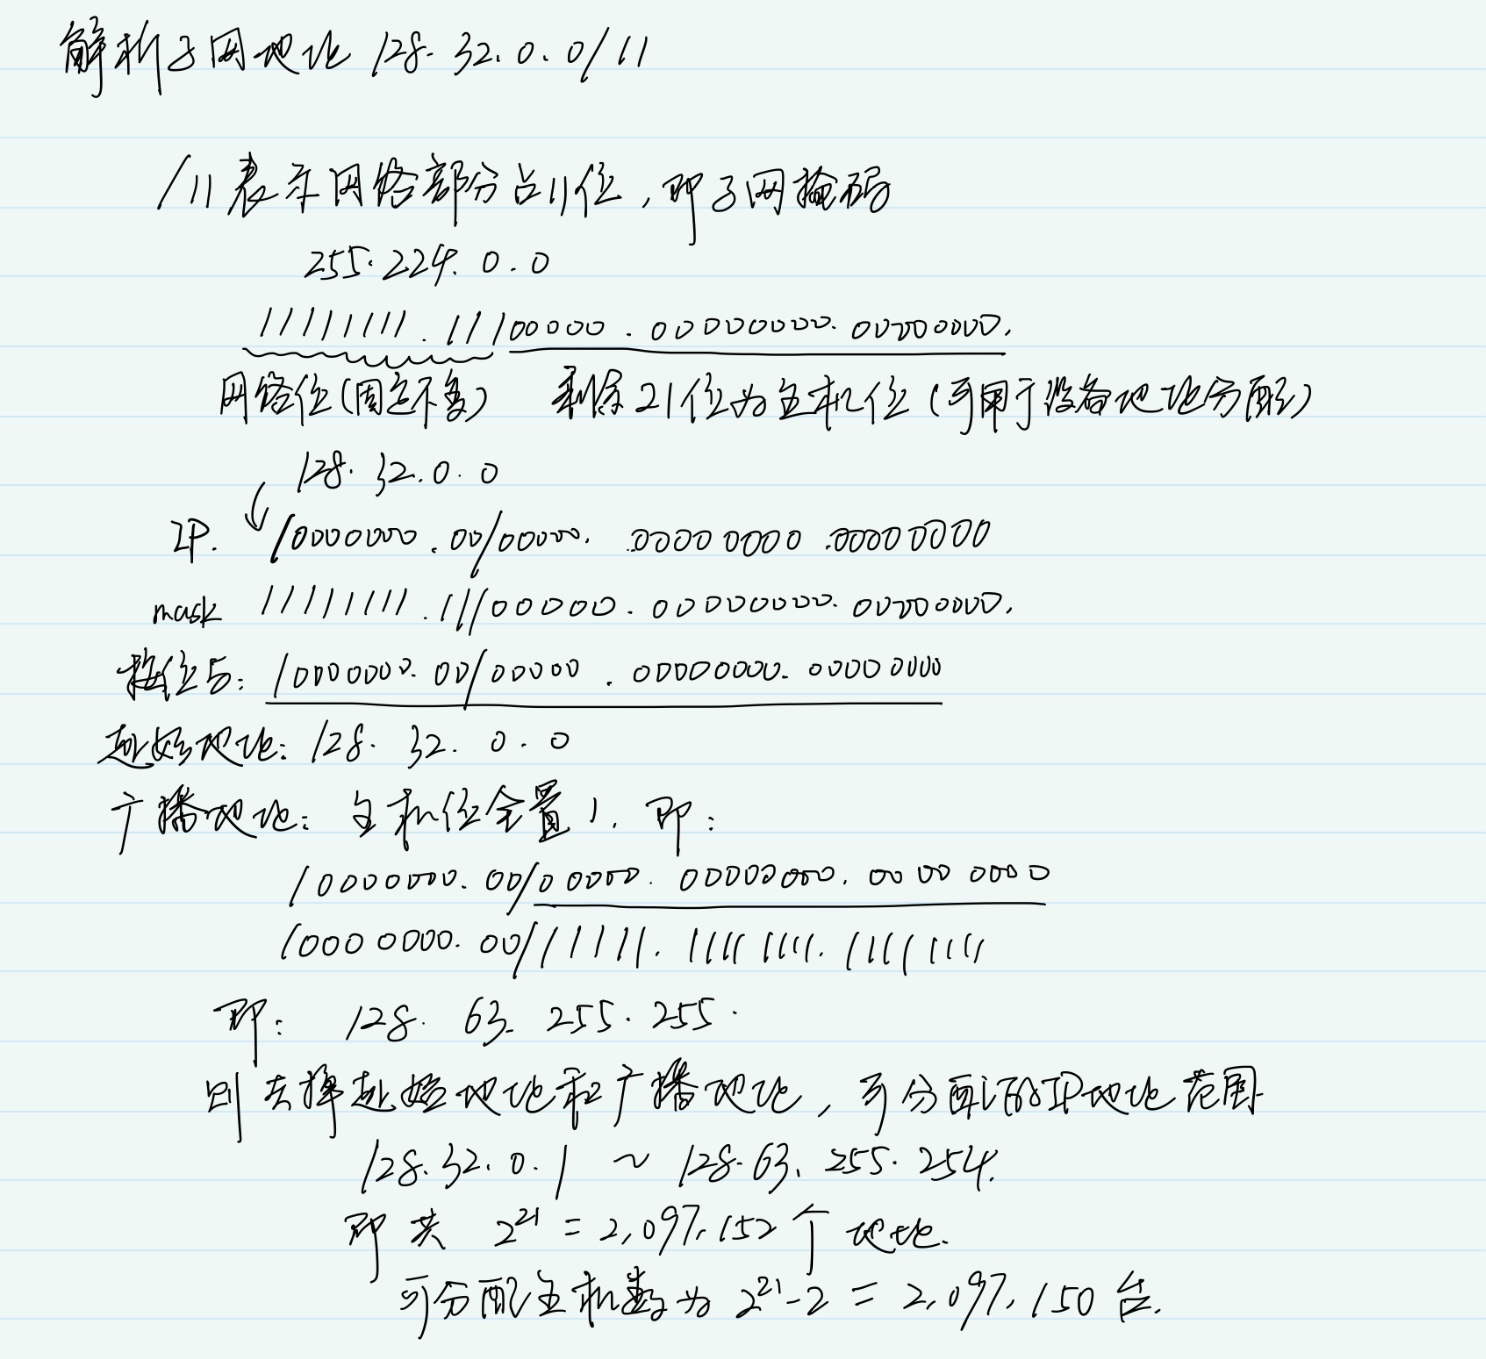 解析子网地址 128.32.0.0/11
/11表示网络部分占11位,即子网掩码
255.224.0.0
11111111.11100000.00000000.00000000.
网络位(固定不变) 剩余21位为主机位(可用于设备地址分配)
128.32.0.0
IP. 10000000.00100000.00000000.00000000
mask 11111111.11100000.00000000.00000000.
按位与: 10000000.00100000.00000000.00000000
起始地址: 128.32.0.0
广播地址: 主机位全置1. 即:
10000000.00100000.00000000.00000000
10000000.00111111.11111111.11111111
即: 128.63.255.255.
则去掉起始地址和广播地址,可分配的IP地址范围
128.32.0.1 ~ 128.63.255.254.
即共 2²¹ = 2,097,152个地址.
可分配主机数为 2²¹-2 = 2,097,150台.